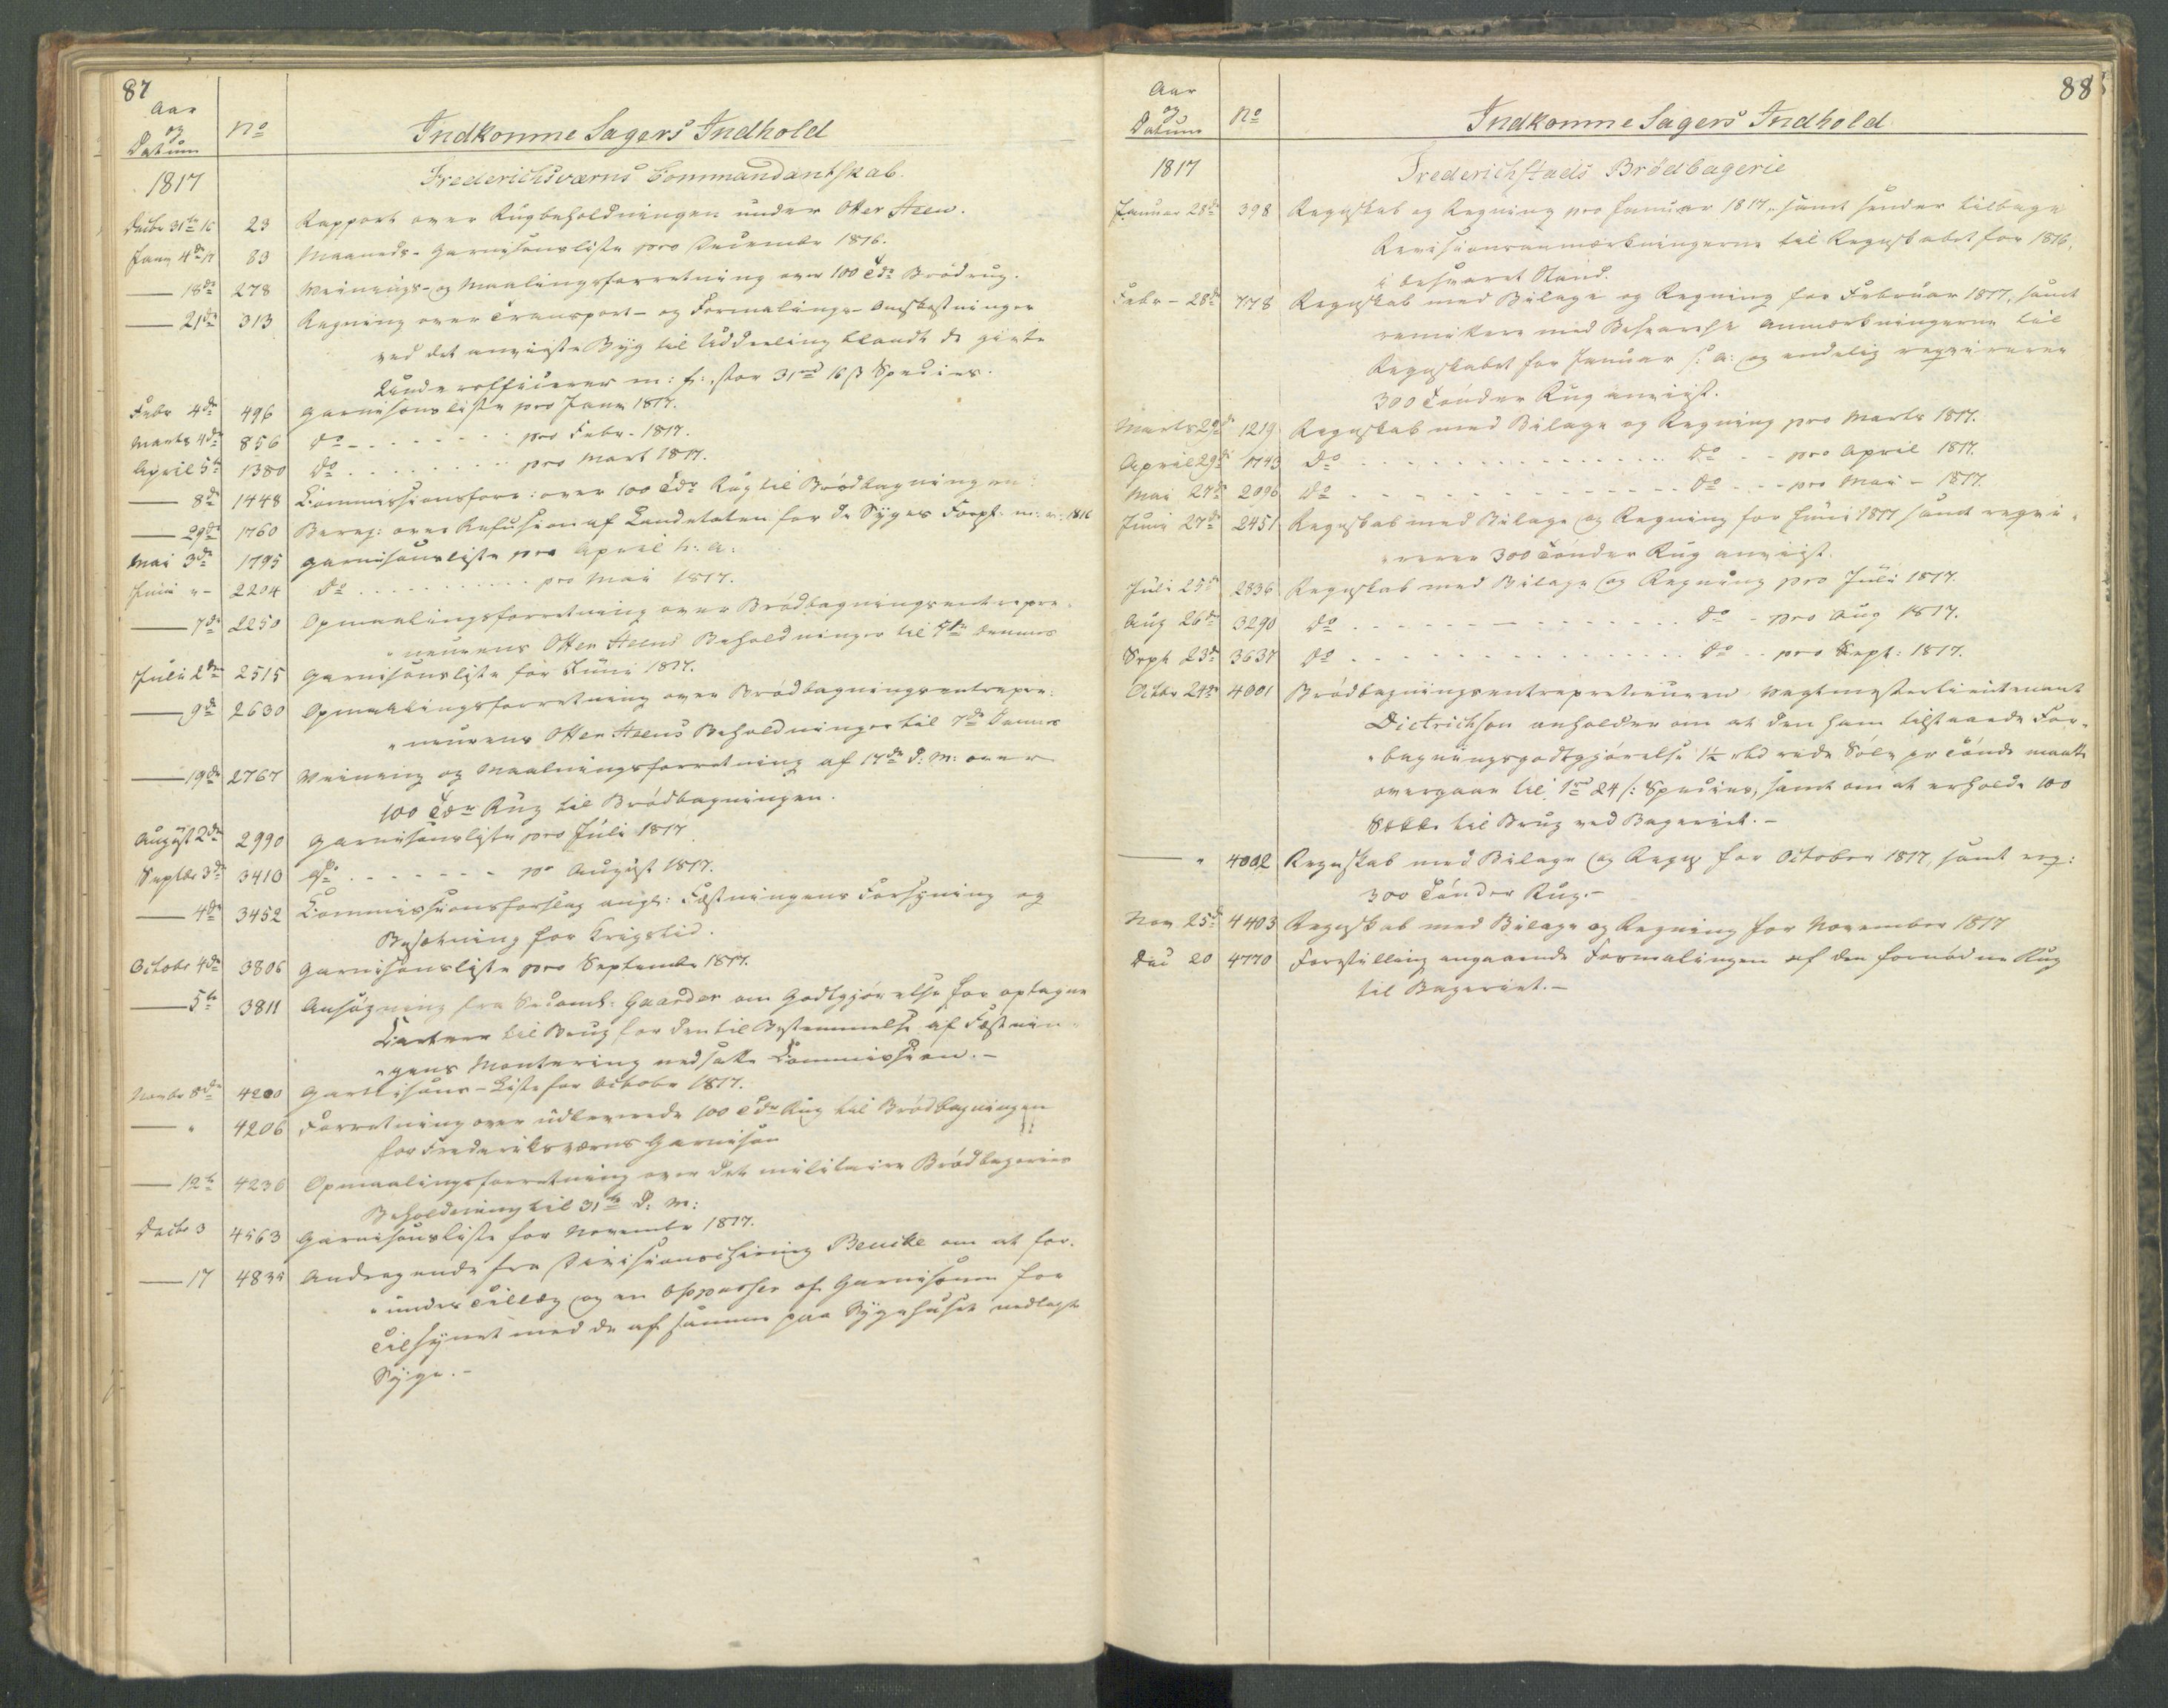 87
Aar
og
Datum
No
Indkomne Sagers Indhold
1817
Frederichsværns Commandantskab.
Decbr 31te 16 23 Rapport over Rugbeholdningen under Otter Steen.
Janu 4de 17 83 Maaneds-Garnisonsliste pro December 1816.
— 18de 278 Veinings- og Maalingsforretning over 100 Tdr Brödrug.
— 21de 313 Regning over Transport- og Formalings-Omkostninger
ved det anviste Byg til Uddeeling blandt de givte
Underofficerer m: f: stor 31rd 16 β Species.
Febr 4de 496 Garnisonsliste pro Janu 1817.
Marts 4de 856 do - . . . . . . . pro Febr. 1817.
April 5te 1380 do . . . . . . . . pro Mart 1817.
— 8de 1448 Commissionsforr: over 100 Tdr Rug til Brödbagningen
— 29de 1760 Bereg: over Refusion af Landetaten for de Syges Forpl. m. v. 1816
Mai 3de 1795 Garnisonsliste pro April h: a:
Juni „- 2204 do . . . . . . . . . . . pro Mai 1817.
— 7de 2250 Opmaalingsforretning over Brödbagningsentrepre-
neurens Otter Steens Beholdninger til 7de Dennes
Juli 2de 2515 Garnisonsliste for Juni 1817.
— 9de 2630 Opmaalingsforretning over Brödbagningsentrepre-
neurens Otter Steens Beholdninger til 7de Dennes
— 19de 2767 Veining og Maalningsforretning af 17de d: M: over
100 Tdr Rug til Brödbagningen.
August 2de 2990 Garnisonsliste pro Juli 1817
Septbr 3de 3410 do . . . . . . . . pro August 1817.
— 4de 3452 Commissionsforslag angl: Fæstningens Forsyning og
Besætning for Krigstid.
Octobr 4de 3806 Garnisonsliste pro September 1817.
— 5te 3811 Ansögning fra Gaarder om Godtgjörelse for optagne
Carter til Brug for den til Bestemmelse af Fæstnin-
gens Montering nedsatte Commission.-
Novbr 8de 4200 Garnisons-Liste for Octobr 1817.
— „ 4206 Forretning over udleverede 100 Tdr Rug til Brödbagningen
for Frederiksværns Garnison
— 12te 4236 Opmaalingsforretning over det militaire Brödbageries
Beholdning til 31te d. M:
Decbr 3 4563 Garnisonsliste for November 1817.
— 17 4835 Andragende fra Divisionschirurg Beucke om at for-
undes Tillæg og en Oppasser af Garnisonen for
Tilsynet med de af samme paa Sygehuset indlagte
Syge.-
88
Aar
og
Datum
No
Indkomne Sagers Indhold
1817
Frederichstads Brödbagerie
Januar 28de 398 Regnskab og Regning pro Januar 1817, samt sender tilbage
Revisionsanmærkningerne til Regnskabet for 1816,
i besvaret Stand.
Febr - 28de 778 Regnskab med Bilage og Regning for Februar 1817, samt
remitterer med Besvarelse Anmærkningerne til
Regnskabet for Januar s: a: og endelig reqvirerer
300 Tönder Rug anviist.
Marts 29de 1219 Regnskab med Bilage og Regning pro Marts 1817.
April 29de 1743 do . . . . . . . . . . . . . . . . do - - pro April 1817.
Mai 27de 2096 do . . . . . . . . . . . . . . . . do - - - pro Mai - 1817.
Juni 27de 2451 Regnskab med Bilage og Regning for Juni 1817 samt reqvi-
rerer 300 Tönder Rug anviist.
Juli 25de 2836 Regnskab med Bilage og Regning pro Juli 1817.
Aug 26de 3290 do . . . . . . . . . . . . . . . . do - pro Aug 1817.
Septr 23de 3637 do . . . . . . . . . . . . . . . . do - - pro Sept: 1817.
Octbr 24de 4001 Brödbagningsentrepreneuren Vagtmesterlieutenant
Dietrichson anholder om at den ham tilstaaede For-
bagningsgodtgjörelse 1½ rbd rede Sölv pr Tönde maatte
overgaae til 1rd 24 s: Species, samt om at erholde 100
Sække til Brug ved Bageriet.-
— „ 4002 Regnskab med Bilage og Regng for October 1817, samt req:
300 Tönder Rug.-
Nov 25de 4403 Regnskab med Bilage og Regning for November 1817
Dec 20 4770 Forestilling angaaende Formalingen af den fornödne Rug
til Bageriet.-